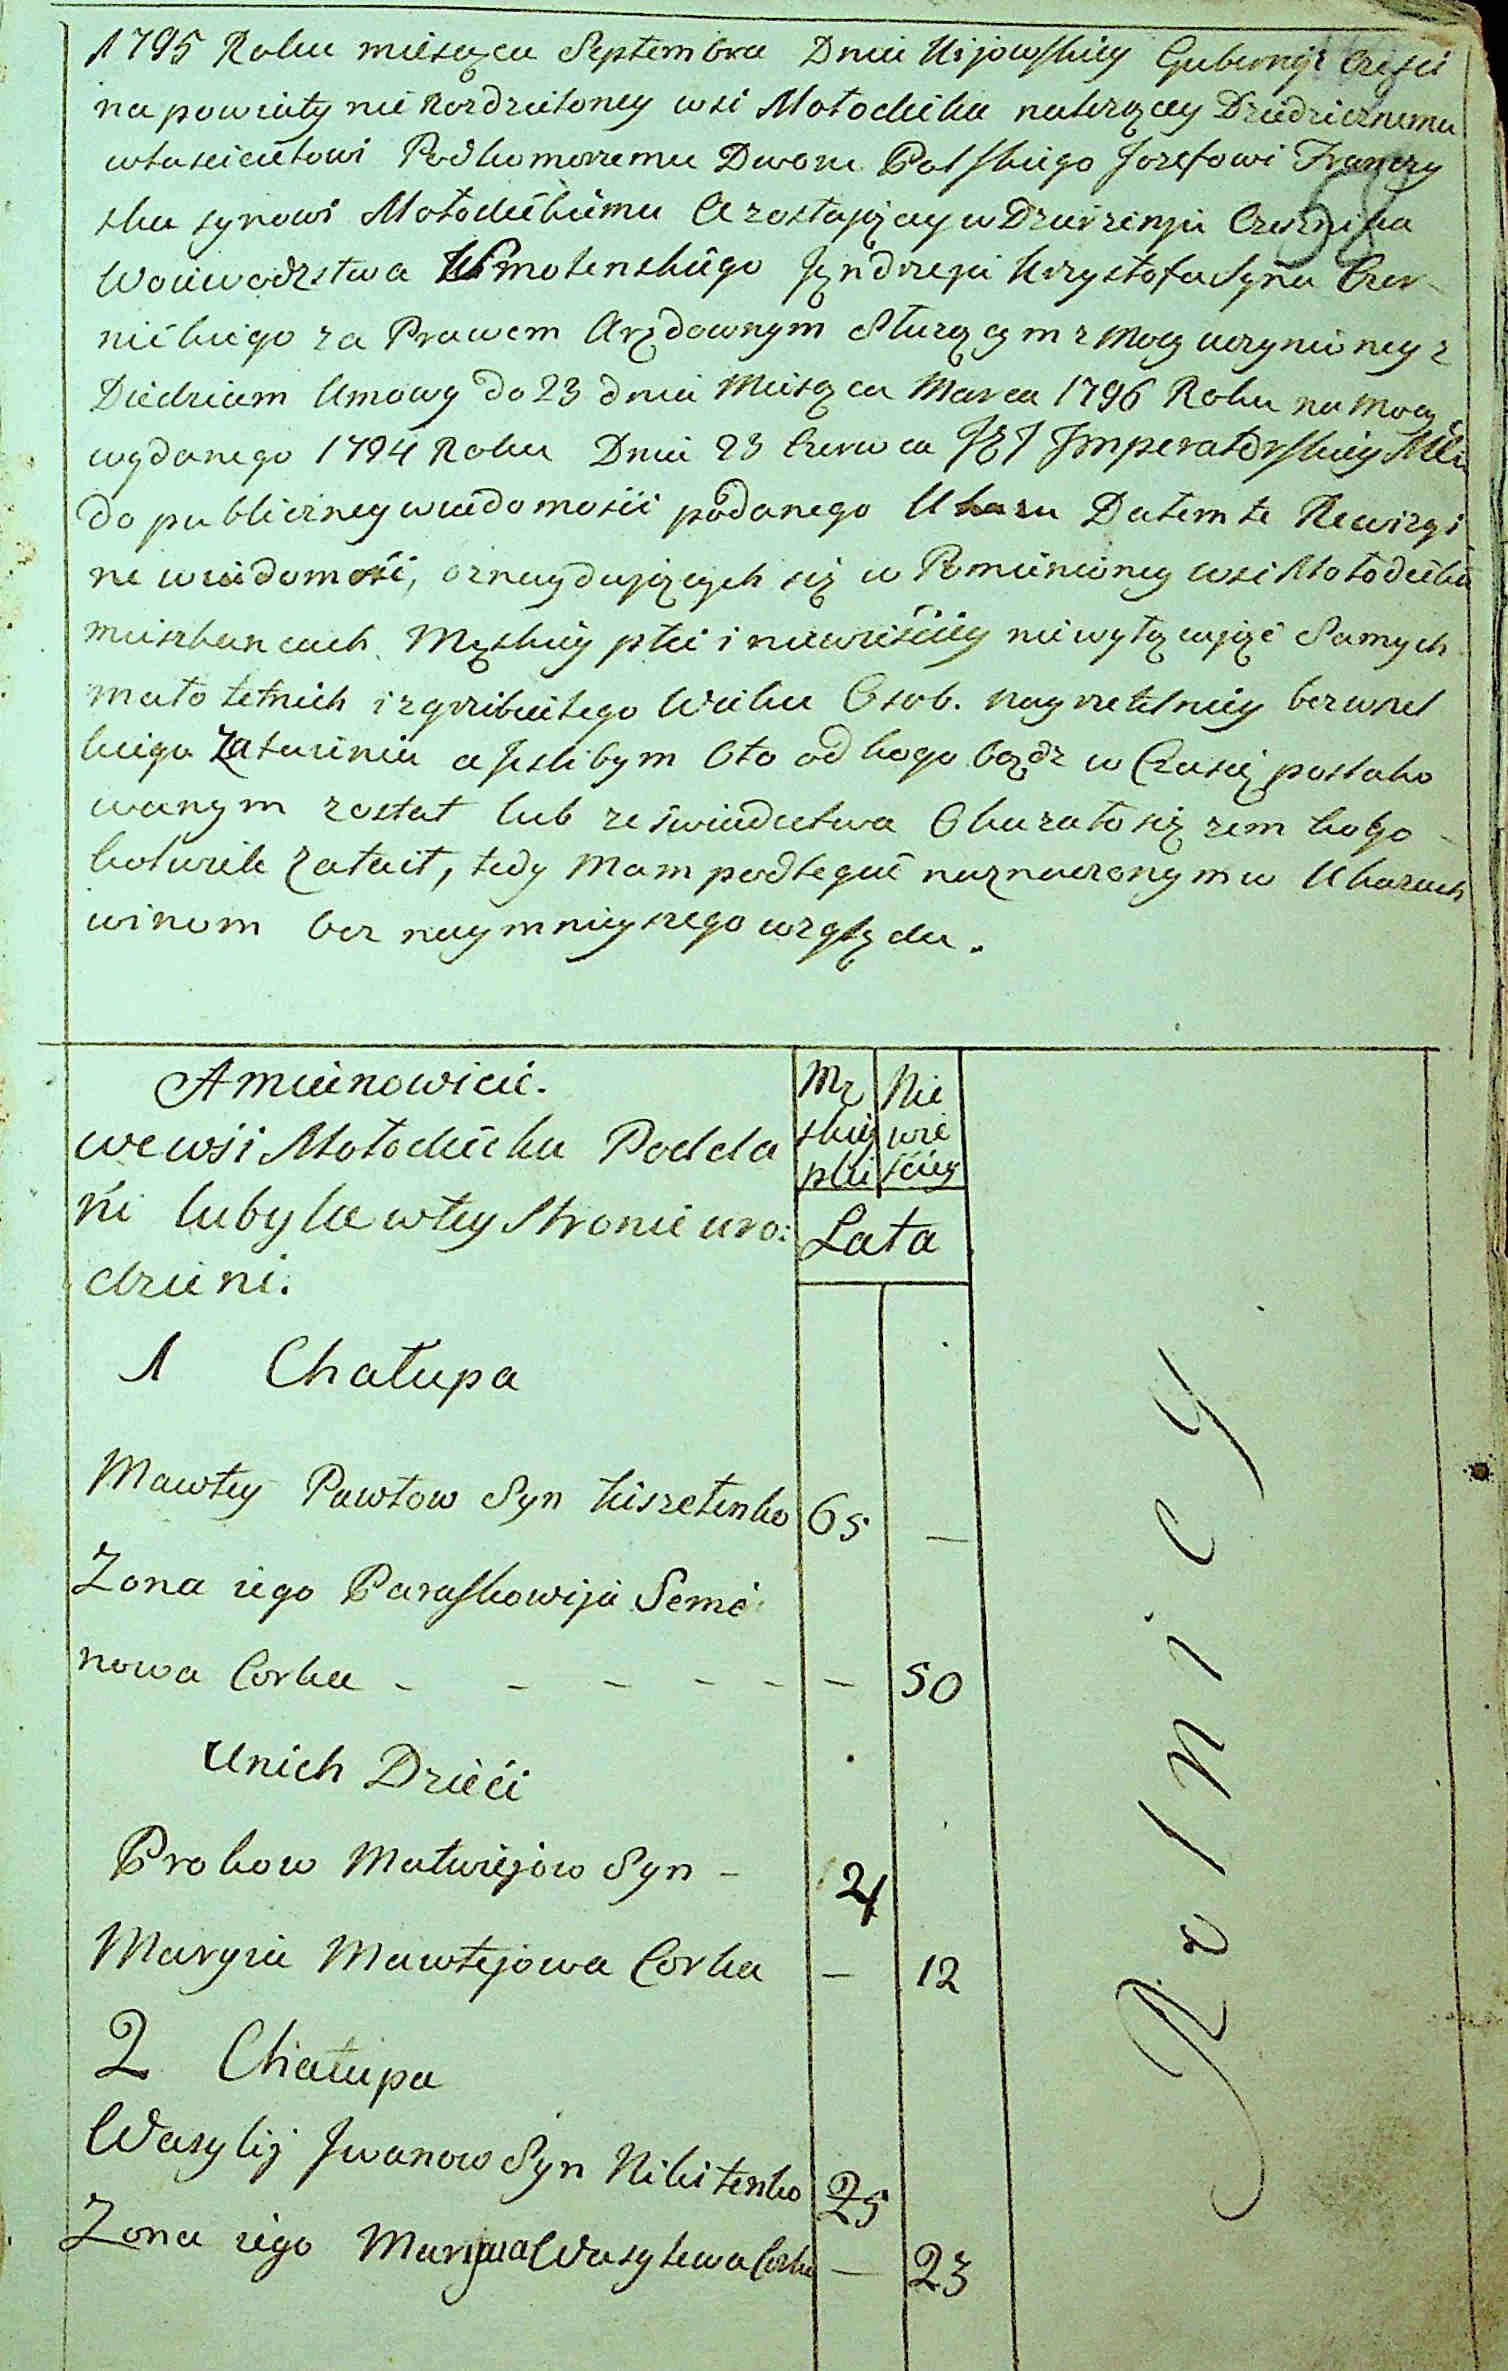 1795 Roku miesąca Septembra Dnia Kijowskiey Gubernyi Częsci
na powiaty nie Rozdzieloney wsi Mołodecka należącey Dziedzicznemu
włascicielowi Podkomorzemu Dworu Polskiego Jozefowi Franczy
58
sku synowi Mołodeckiemu A zostającey w Dzierzeniu Czesnika
Woiewodztwa Smolenskiego Jędrzeja Krzysztofa Syna Czer-
nickiego za Prawem Arędownym Służącym z mocy uczynioney z
Diedziem Umowy do 23 dnia Miesąca Marca 1796 Roku na Mocy
wydanego 1794 Roku Dnia 23 Czerwca Jey Imperatorskiey Mci
do publiczney wiadomosci podanego Ukazu Datem te Rewizyi
ne wiadomosci, o znaydujących się w Pomienioney wsi Mołodecka
mieszkancach Męskiey płci i niewieściey nie wyłączając Samych
mało letnich i zgrzibiałego Wieku Osob. nayrzetelniey bez wszel
kiego Zataienia a Jeslibym Oto od kogo bądz w Czasie poszlako
wanym został lub ze świadectwa Okazało się zem kogo
kolwiek zataił, tedy Mam podlegać naznaczonym w Ukazach
winom bez naymnieyszego względu.
Amianowicie.
we wsi Mołodecku Podda
ni lubyle w tey Stronie uro:
dzieni.
Mę
skiey
płci
Nie
wie
sciey
Lata
1 Chałupa
Mawtey Pawłow Syn Kiszelenko 65 —
Zona iego Paraskowija Seme
nowa Corka - - - - - — 50
U nich Dzieci
Prokow Matwiejow Syn - 21
Maryia Mawtejowa Corka — 12
2 Chałupa
Wasylij Iwanow Syn Nikitenko 25
Zona iego Maryia Wasylewa Corka — 23
Rolnicy